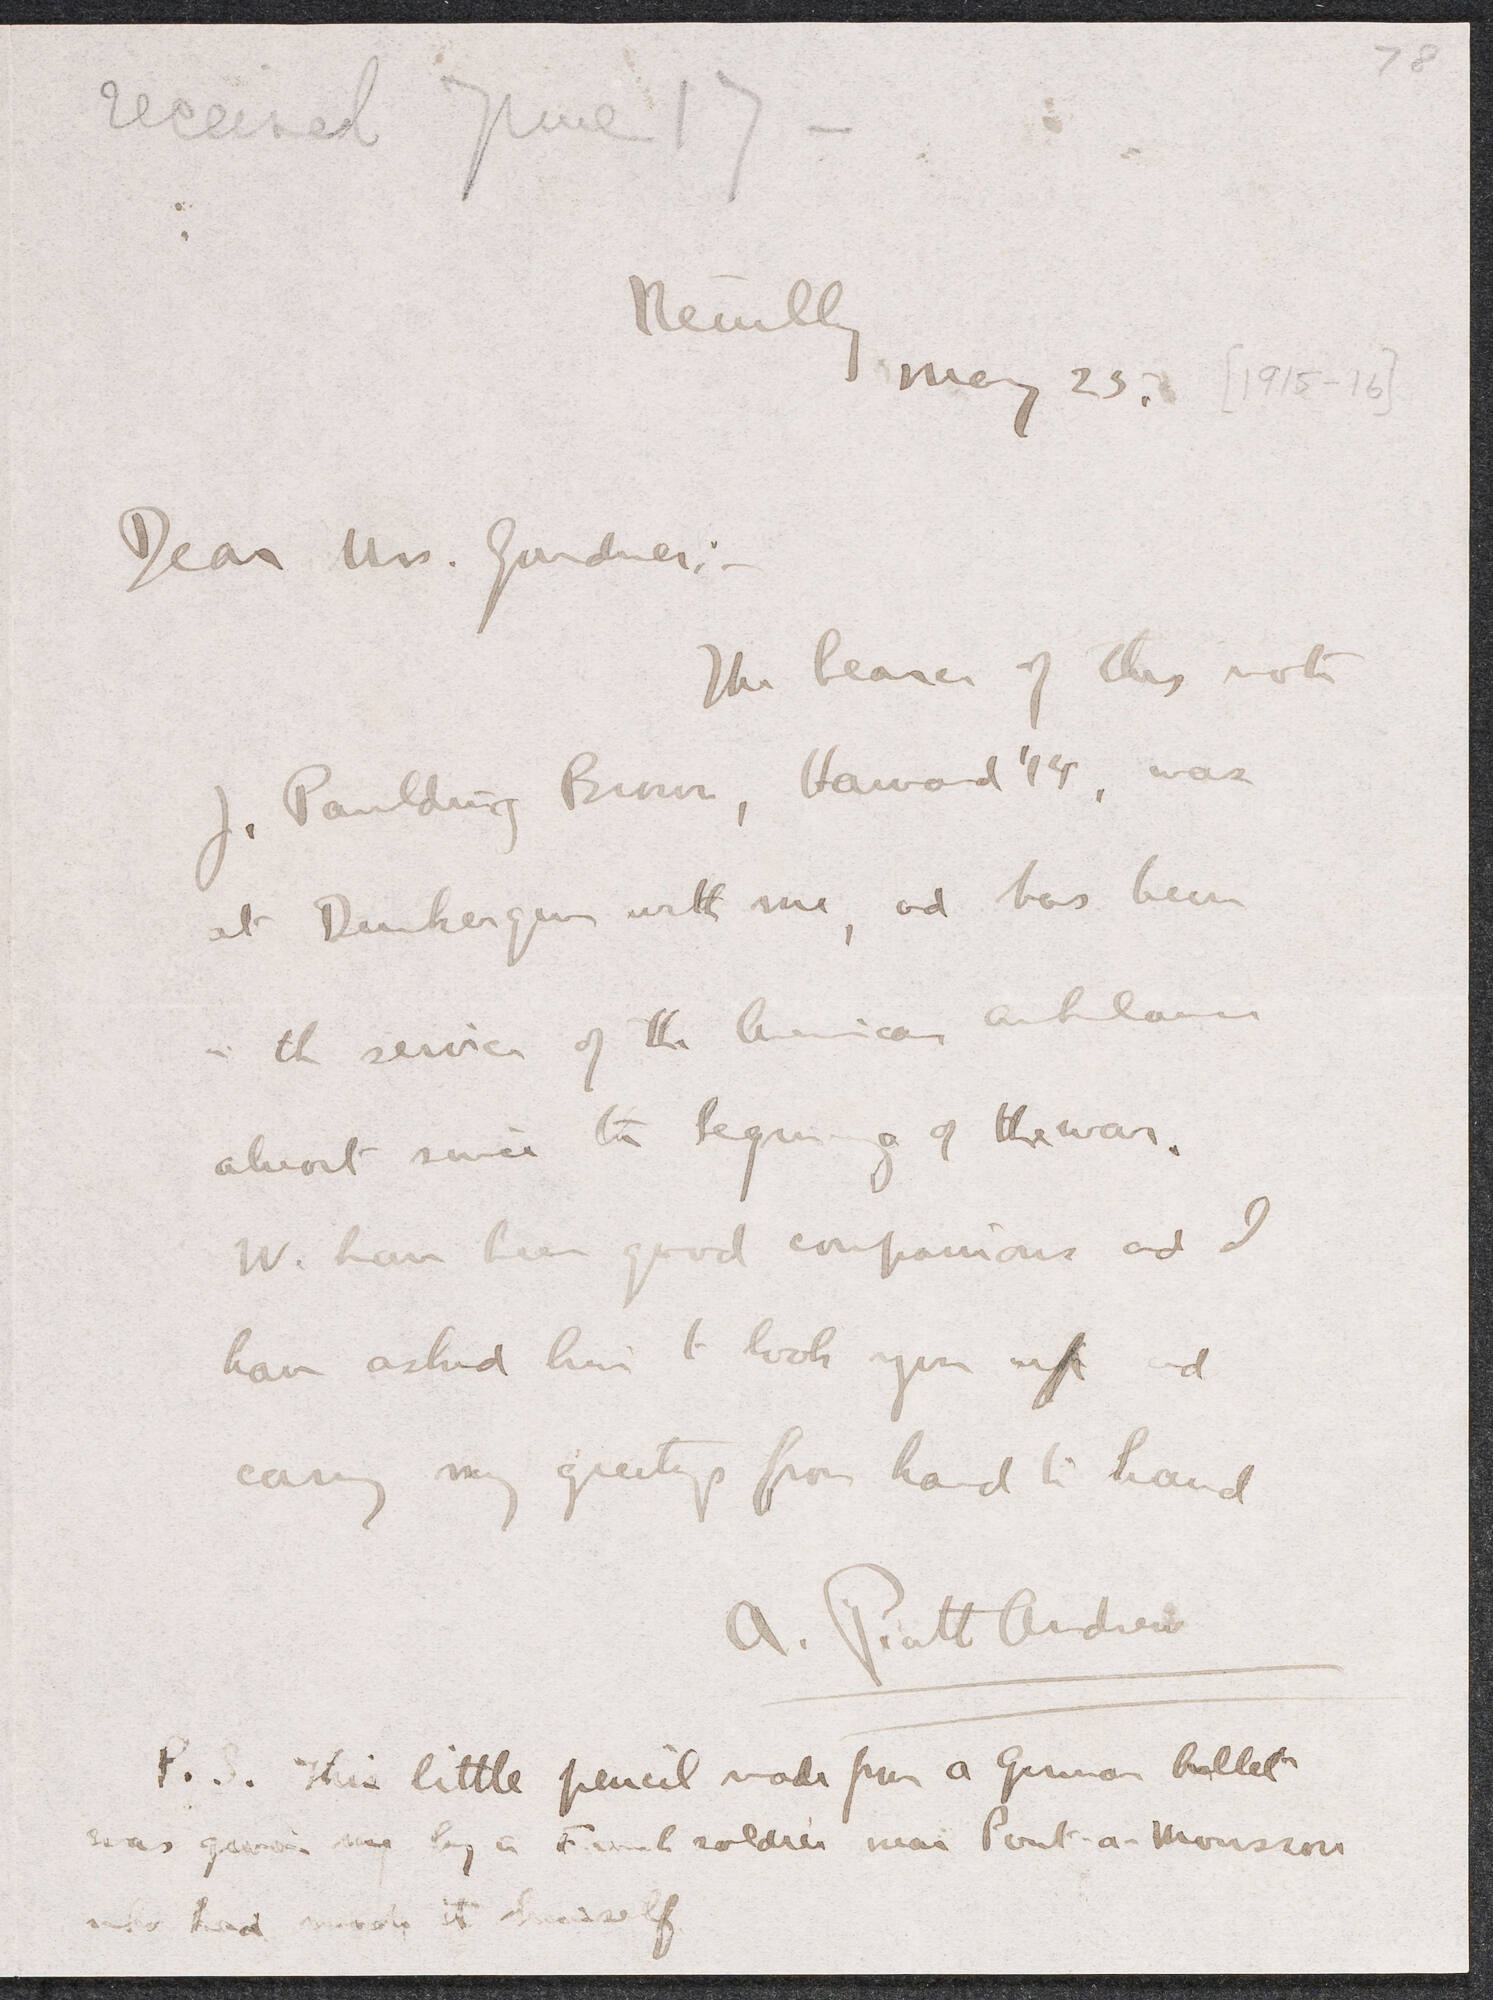 78
received June 17 -
Neuilly
May 23. [1915-16]
Dear Mrs. Gardner:-
The bearer of this note
J. Paulding Brown, Harvard '14, was
at Dunkerque with me, and has been
in the service of the American ambulance
almost since the beginning of the war.
We have been good companions and I
have asked him to look you up and
carry my greetings from hand to hand
A. Piatt Andrew
P. S. This little pencil made from a German bullet
was given me by a French soldier near Pont-a-Mousson
who had made it himself